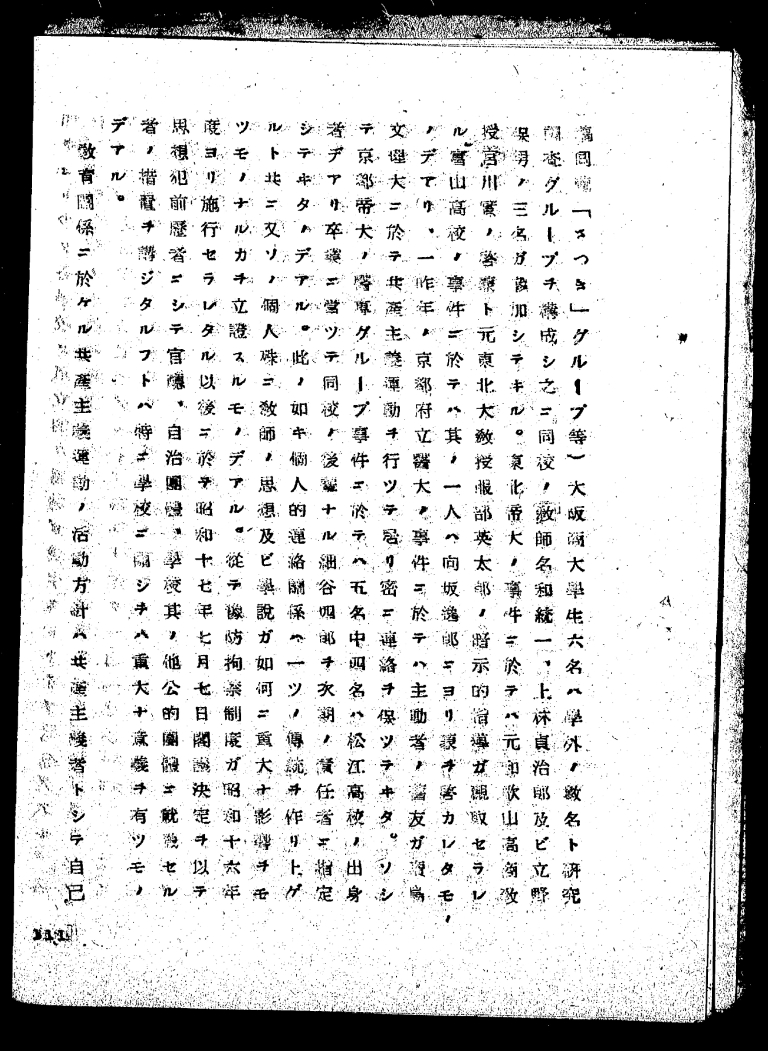 「さつき」グループ等）大阪商大學生六名ハ學外ノ數名ト研究
グループヲ構成シ之ニ同校ノ敎師名和統一、上林貞治郎及ビ立野
保男ノ三名ガ參加シテキル。東北帝大ノ事件ニ於テハ元和歌山高商敎
授宮川實ノ著書ト元東北大敎授服部英太郎ノ暗示的指導ガ看取セラレ
ル富山高校ノ事件ニ於テハ其ノ一人ハ向坂逸郎ニヨリ導カレタモノ
ノデアリ、一昨年ノ京都府立醫大ノ事件ニ於テハ主動者ノ舊友ガ廣島
文理大ニ於テ共產主義運動ヲ行ツテ居リ密ニ連絡ヲ保ツテキタ。ソシ
テ京都帝大ノ醫專グループ事件ニ於テハ五名中四名ハ松江高校ノ出身
者デアリ卒業ニ當ツテ同校ノ後輩ナル細谷四郎ヲ次期ノ責任者ニ指定
シテキタノデアル。此ノ如キ個人的連絡關係ハ一ツノ傳統ヲ作リ上ゲ
ルト共ニ又ソノ個人殊ニ敎師ノ思想及ビ學說ガ如何ニ重大ナ影響ヲモ
ツモノナルカヲ立證スルモノデアル。從テ豫防拘禁制度ガ昭和十六年
度ヨリ施行セラレタル以後ニ於テ昭和十七年七月七日閣議決定ヲ以テ
思想犯前歷者ニシテ官廳、自治團體、學校其ノ他公的團體ニ就職セル
者ノ措置ヲ講ジタルコトハ特ニ學校ニ關シテハ重大ナ意義ヲ有ツモノ
デアル。
敎育關係ニ於ケル共產主義運動ノ活動方針ハ共產主義者トシテ自己